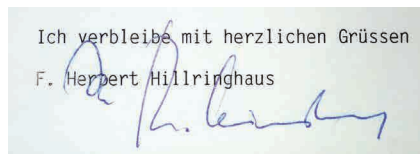 Ich verbleibe mit herzlichen Grüssen
F. Herbert Hillringhaus